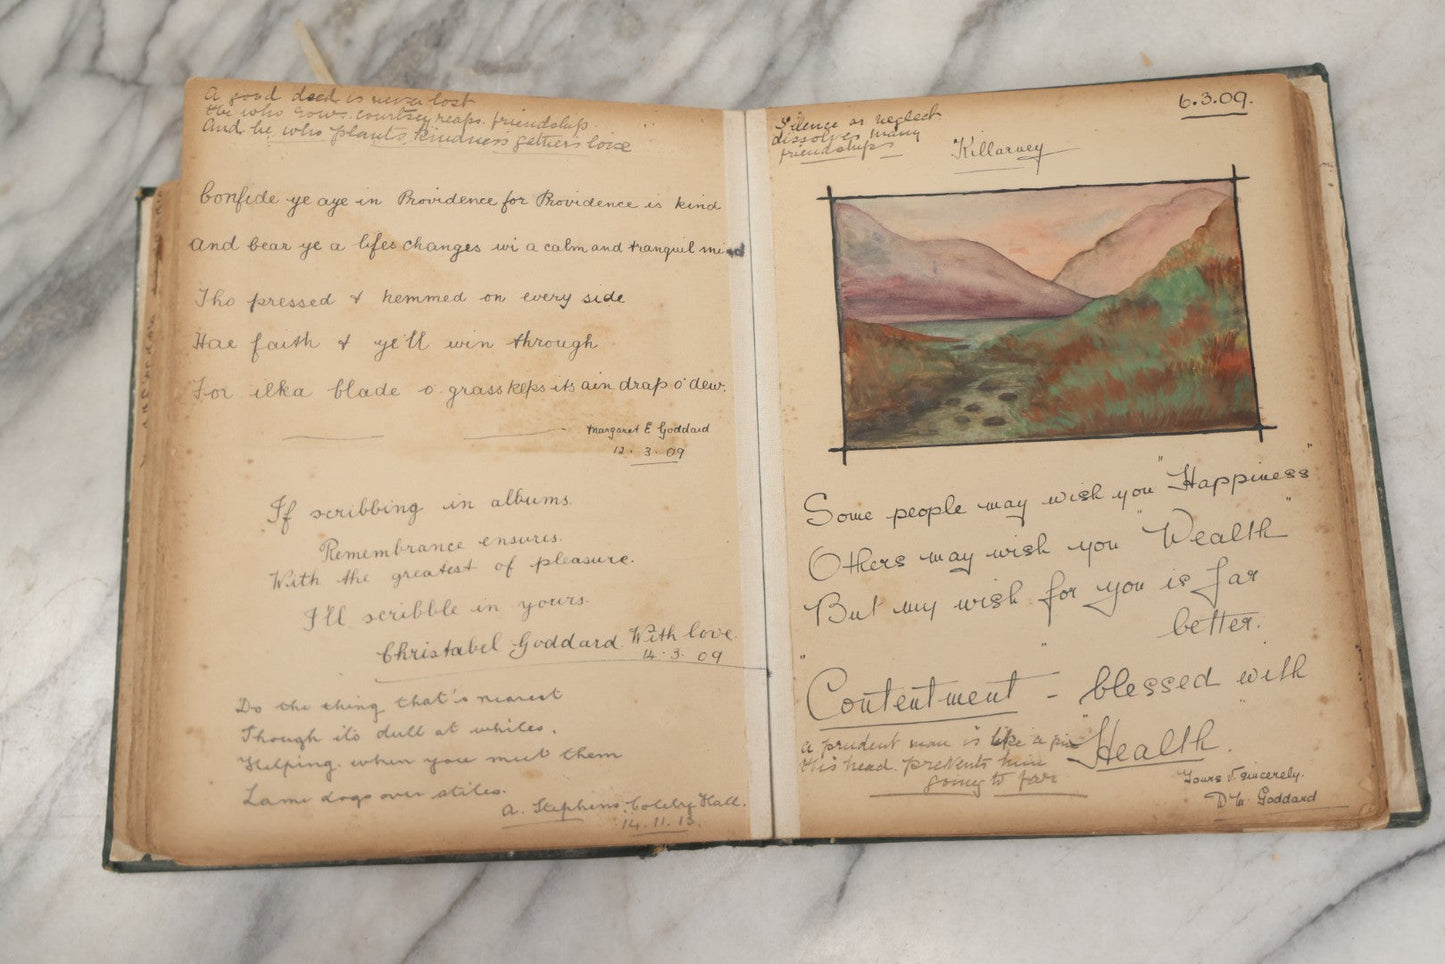 A good deed is never lost
He who sows courtsey reaps friendship
And he who plants kindness gathers love
Confide ye aye in Providence for Providence is kind
And bear ye a lifes changes wi a calm and tranquil mind
Tho pressed & hemmed on every side
Hae faith & ye'll win through
For ilka blade o' grass keps its ain drap o' dew.
Margaret E Goddard
12. 3. 09
If scribbing in albums.
Remembrance ensures.
With the greatest of pleasure.
I'll scribble in yours.
Christabel Goddard. With love.
14. 3. 09
Do the thing that's nearest
Though it's dull at whiles.
Helping when you meet them
Lame dogs over stiles.
A. Stephens Coleby Hall.
14. 11. 13.
Silence or neglect
dissolves many
friendships
6.3.09.
Killarney
Some people may wish you "Happiness"
Others may wish you "Wealth"
But my wish for you is far
better.
"Contentment" - blessed with
"Health".
A prudent man is like a pin
His head prevents him
going to far
Yours V. sincerely.
D. M. Goddard